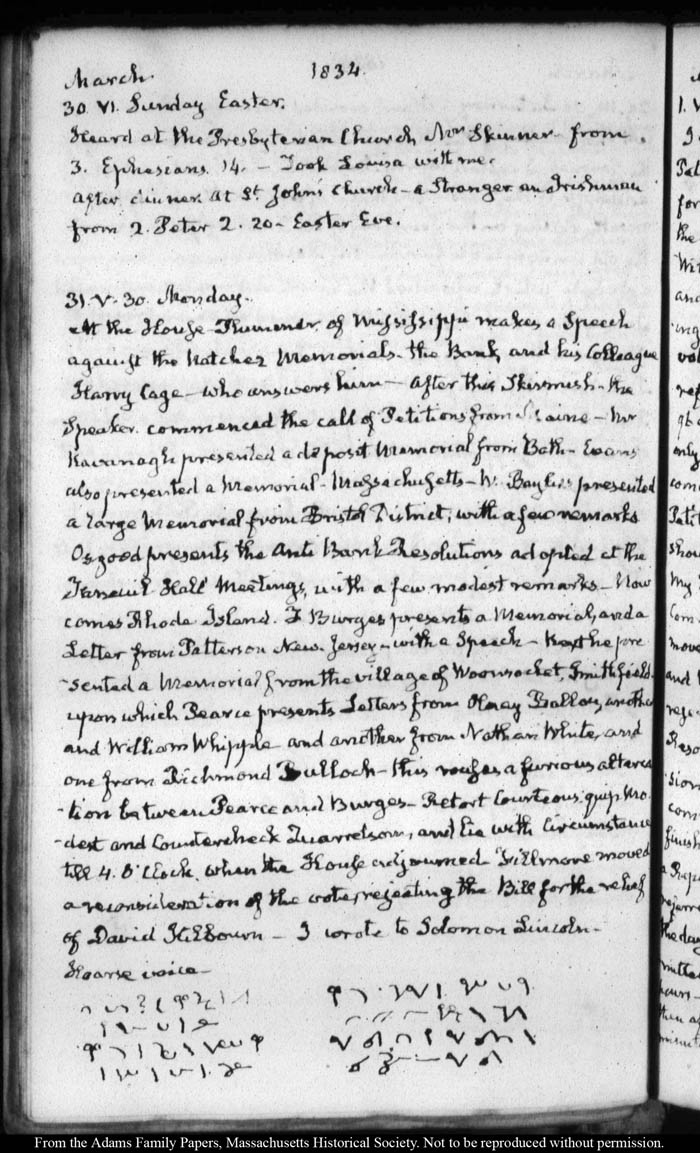 March. 1834.
30. VI. Sunday Easter.
Heard at the Presbyterian Church Mr Skinner from
3. Ephesians. 14. – Took Louisa with me.
after dinner at St. John's Church – a Stranger an Irishman
from 2. Peter 2. 20 – Easter Eve.
31. V. 30. Monday.
At the House – Plummer of Mississippi makes a Speech
against the Natchez Memorials – the Bank, and his Colleague
Harry Cage – who answers him – After this Skirmish – the
Speaker commenced the call of Petitions from Maine – Mr
Kavanagh presented a deposit Memorial from Bath – Evans
also presented a Memorial – Massachusetts – W. Baylies presented
a large Memorial from Bristol District, with a few remarks
Osgood presents the Anti Bank Resolutions adopted at the
Faneuil Hall Meetings, with a few modest remarks – Now
comes Rhode Island. T Burges presents a Memorial, and a
Letter from Patterson New-Jersey – with a Speech – Next he pre
-sented a Memorial from the village of Woonsocket, Smithfield –
upon which Pearce presents Letters from Olney Ballou, another
and William Whipple and another from Nathan White, and
one from Richmond Bullock – this rouses a furious alterca
-tion between Pearce and Burges – Retort Courteous, quip Mo
-dest and Countercheck Quarrelsome, and Lie with Circumstance
till 4. O'Clock, when the House adjourned Fillmore moved
a reconsideration of the vote, rejecting the Bill for the relief
of David Kilbourn – I wrote to Solomon Lincoln –
Hoarse voice –
From the Adams Family Papers, Massachusetts Historical Society. Not to be reproduced without permission.